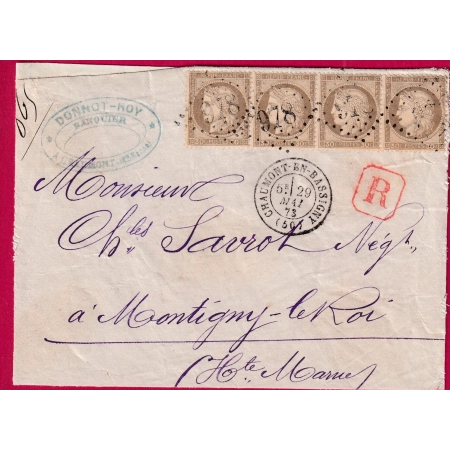 DONNOT-ROY
BANQUIER
978
CHAUMONT-EN-BASSIGNY
5E 29
MAI
73
(50)
R
Monsieur
Ch.les Savrot Négt,
à Montigny-le-Roi
(Hte Marne)